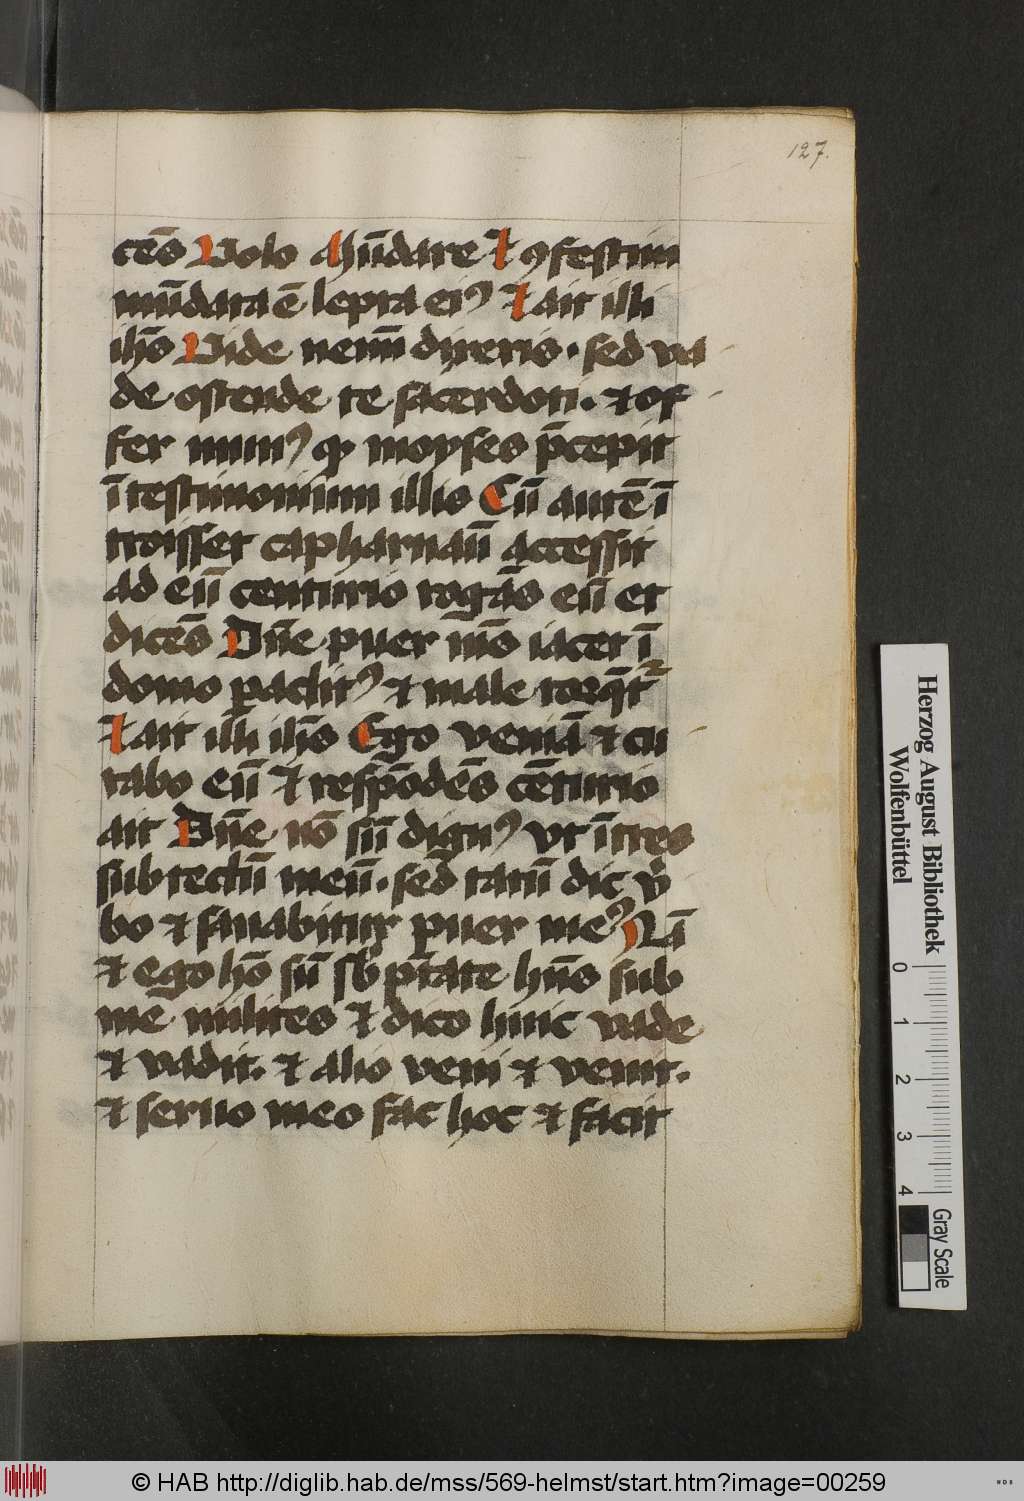 127.
cēs Volo Mūdare Et ꝯfestim
mūdata ē lepra eiꝰ Et ait illi
ihs̄ Vide nemī dixeris · sed va
de ostende te sacerdoti. et of
fer munꝰ qđ moyses p̄cepit
ī testimonium illis Cū autē ī
troisset capharnaū accessit
ad eū centurio rogās eū et
dicēs Dn̄e puer ms̄ iacet ī
domo paclitꝰ et male torq̄t᷑
Et ait illi ihs̄ Ego veniā et cu
rabo eū Et respōdēs cēturio
ait Dn̄e nō sū dignꝰ vt ītres
sub tectū meū · sed tatū dic v̄
bo et sanabitur puer meꝰ Nā
et ego hō sū sb ptāte hn̄s sub
me milites Et dico huic vade
et vadit. et alio veni et venit.
et seruo meo fac hoc et facit
Herzog August Bibliothek
Wolfenbüttel
0 1 2 3 4
Gray Scale
© HAB http://diglib.hab.de/mss/569-helmst/start.htm?image=00259